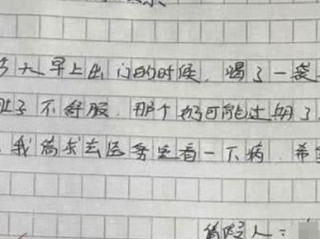 天早上出门的时候，喝了一袋
肚子不舒服，那个奶可能过期了
我需求去医务室看一下病，希
请假人：